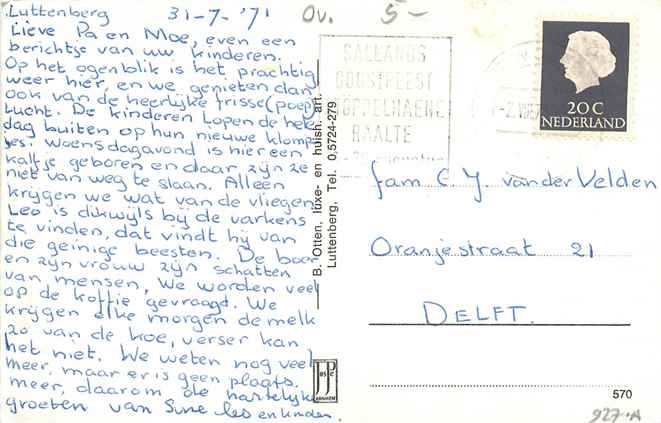 Luttenberg 31-7-'71 Ov. 5-
Lieve Pa en Moe, even een
berichtje van uw kinderen.
Op het ogenblik is het prachtig
weer hier, en we genieten dan
ook van de heerlijke frisse (poep)
lucht. De kinderen lopen de hele
dag buiten op hun nieuwe klomp-
jes. Woensdagavond is hier een
kalfje geboren en daar zijn ze
niet van weg te slaan. Alleen
krijgen we wat van de vliegen.
Leo is dikwijls bij de varkens
te vinden, dat vindt hij van
die geinige beesten. De boer
en zijn vrouw zijn schatten
van mensen, We worden veel
op de koffie gevraagd. We
krijgen elke morgen de melk
zo van de koe, verser kan
het niet. We weten nog veel
meer, maar er is geen plaats
meer, daarom de hartelijke
groeten van Sine Leo en kinderen.
B. Otten, luxe- en huish. art.
Luttenberg, Tel. 0,5724-279
SALLANDS
OOGSTFEEST
STOPPELHAENE
RAALTE
20 C
NEDERLAND
fam C. J. van der Velden
Oranjestraat 21
DELFT.
JosPé
ARNHEM
570
927-A